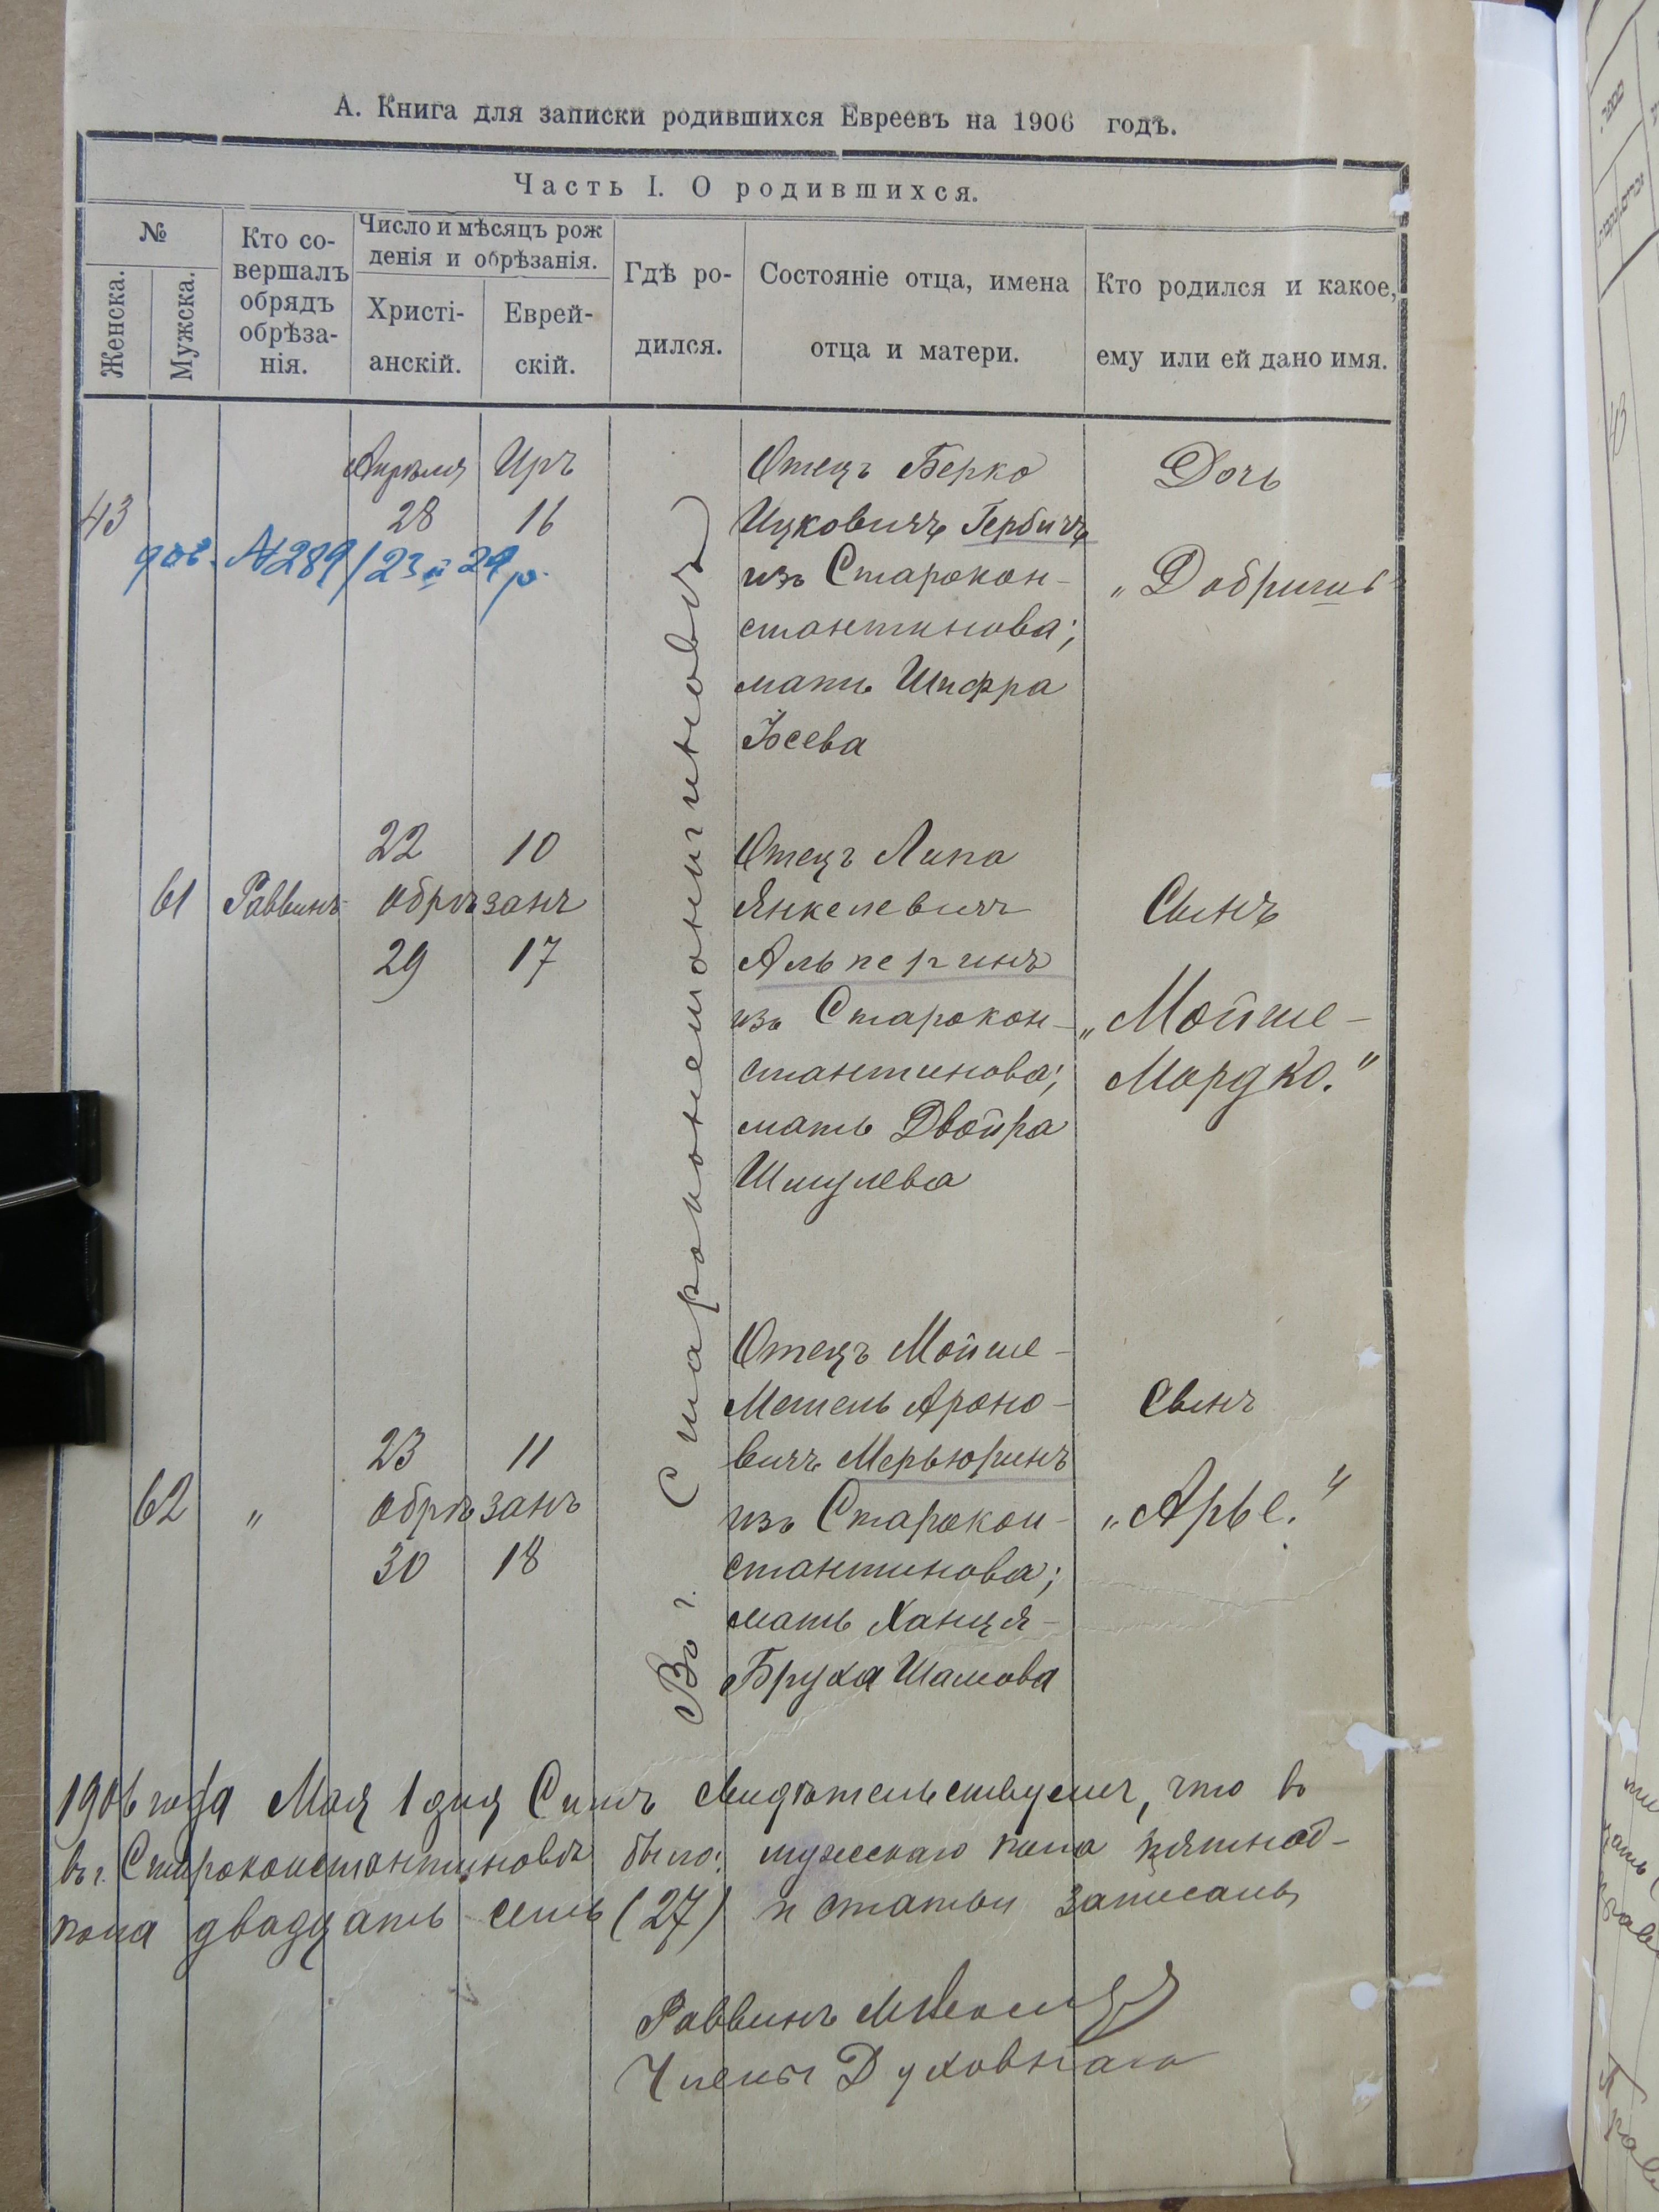 А. Книга для записки родившихся Евреевъ на 1906 годъ.
Часть I. О родившихся.
№
Женска.
Мужска.
Кто со-
вершалъ
обрядъ
обрѣза-
нія.
Число и мѣсяцъ рож
денія и обрѣзанія.
Христі-
анскій.
Еврей-
скій.
Гдѣ ро-
дился.
Состояніе отца, имена
отца и матери.
Кто родился и какое,
ему или ей дано имя.
Апрѣля Иръ
43 28 16
дов. №289/23 и 29 р.
Въ г. Староконстантиновѣ
Отецъ Берко
Ицковичъ Гербичъ
изъ Старокон-
стантинова;
мать Шифра
Іосева
Дочь
„Добришъ
22 10
61 Раввинъ обрѣзанъ
29 17
Отецъ Липа
Янкелевич
Альперинъ
изъ Старокон-
стантинова;
мать Двойра
Шмулева
Сынъ
„Мойше-
Мордко."
23 11
62 " обрѣзанъ
30 18
Отецъ Мойше-
Мешель Ароно-
вичъ Мерьюринъ
изъ Старокон-
стантинова;
мать Ханця-
Бруха Шамова
Сынъ
„Арье."
1906 года Мая 1 дня Симъ свидѣтельствуемъ, что въ
въ г. Староконстантиновѣ было: мужескаго пола пятнад-
пола двадцать семь (27) и статьи записаны
Раввинъ
Члены Духовнаго